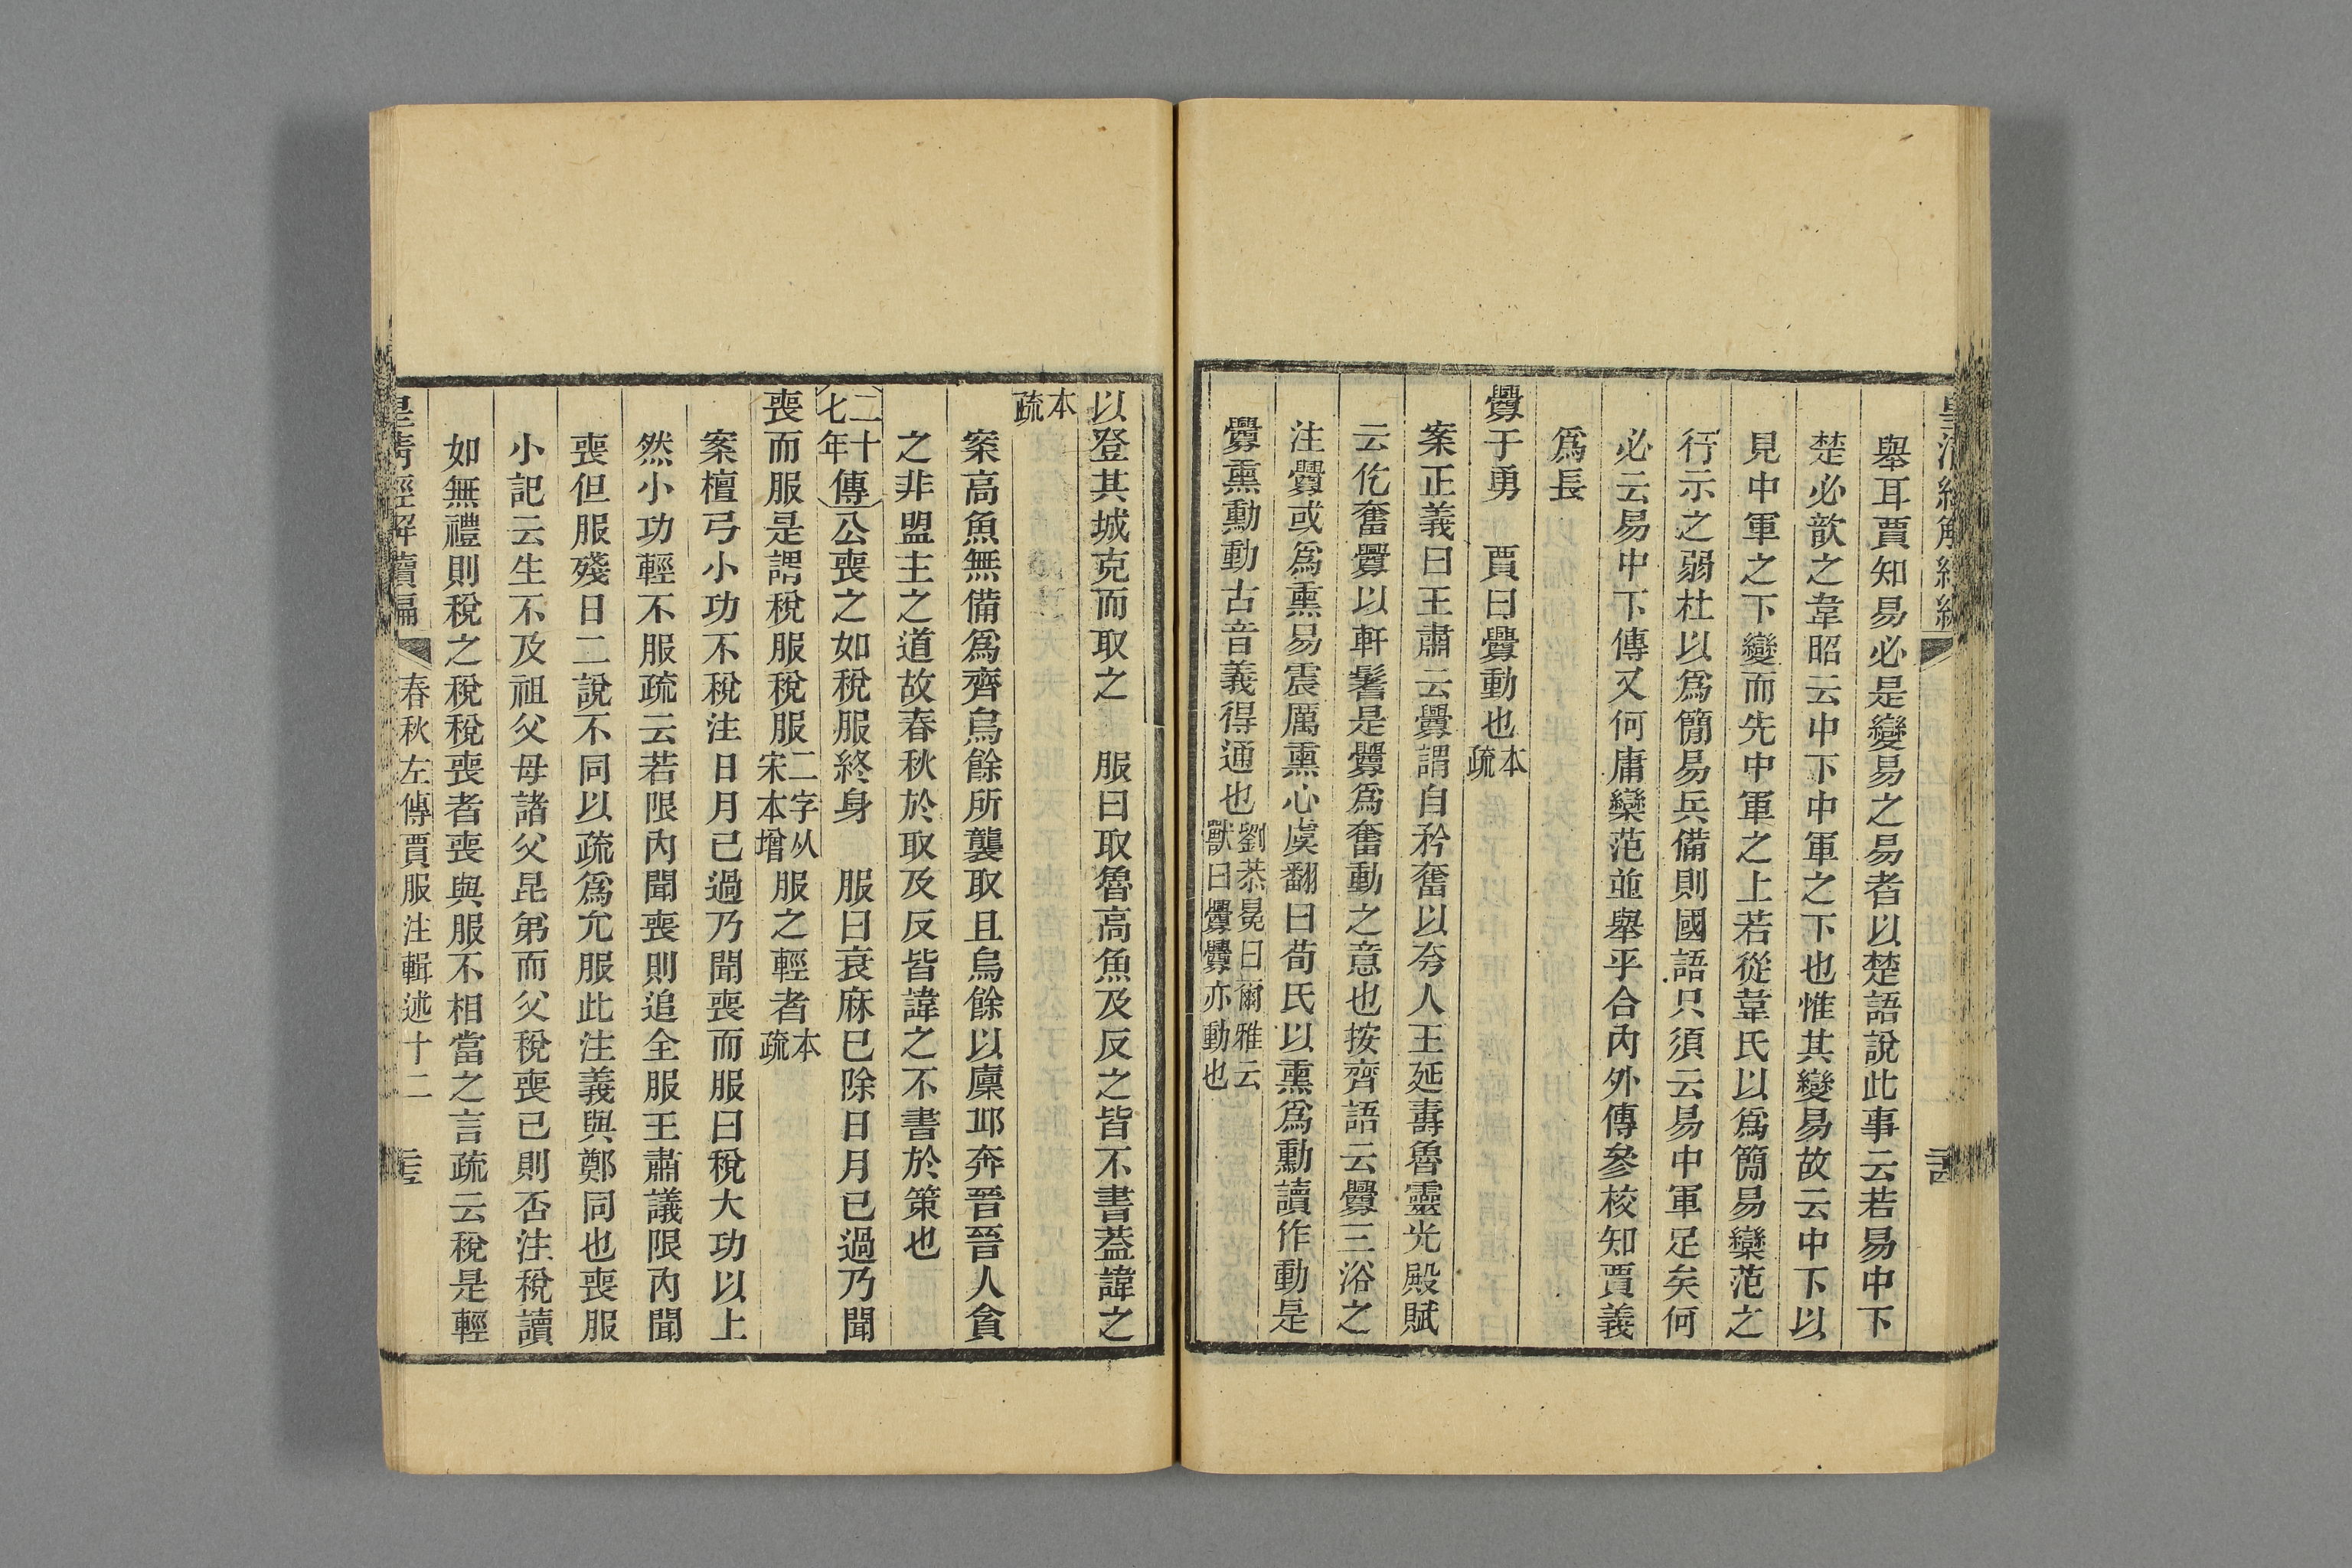 舉耳賈知易必是變易之易者以楚語說此事云若易中下
楚必歆之韋昭云中下中軍之下也惟其變易故云中下以
見中軍之下變而先中軍之上若從韋氏以爲簡易欒范之
行示之弱杜以爲簡易兵備則國語只須云易中軍足矣何
必云易中下傳又何庸欒范並舉乎合內外傳參校知賈義
爲長
釁于勇　賈曰釁動也本疏
案正義曰王肅云釁謂自矜奮以夸人王延壽魯靈光殿賦
云仡奮釁以軒鬐是釁爲奮動之意也按齊語云釁三浴之
注釁或爲熏易震厲熏心虞翻曰荀氏以熏爲勳讀作動是
釁熏勳動古音義得通也劉恭冕曰爾雅云獸曰釁釁亦動也
以登其城克而取之　服曰取魯高魚及反之皆不書蓋諱之
本疏
案高魚無備爲齊烏餘所襲取且烏餘以廩邱奔晉晉人貪
之非盟主之道故春秋於取及反皆諱之不書於策也
二十七年傳公喪之如稅服終身　服曰衰麻已除日月已過乃聞
喪而服是謂稅服稅服二字从宋本增服之輕者本疏
案檀弓小功不稅注日月已過乃聞喪而服曰稅大功以上
然小功輕不服疏云若限內聞喪則追全服王肅議限內聞
喪但服殘日二說不同以疏爲允服此注義與鄭同也喪服
小記云生不及祖父母諸父昆弟而父稅喪己則否注稅讀
如無禮則稅之稅稅喪者喪與服不相當之言疏云稅是輕
皇清經解續編　春秋左傳賈服注輯述十二